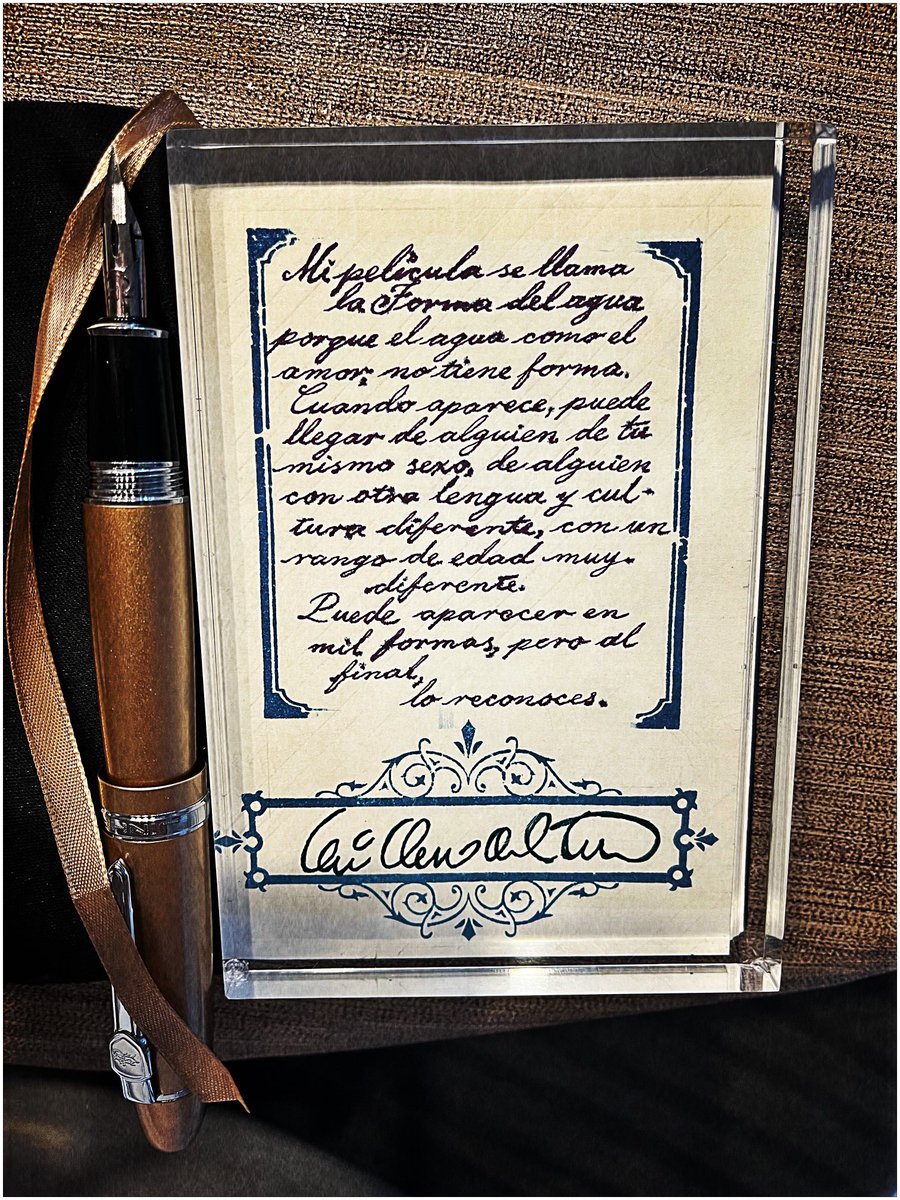 Mi película se llama
la Forma del agua
porque el agua como el
amor, no tiene forma.
Cuando aparece, puede
llegar de alguien de tu
mismo sexo, de alguien
con otra lengua y cul-
tura diferente, con un
rango de edad muy
diferente.
Puede aparecer en
mil formas, pero al
final,
lo reconoces.
Guillermo del Toro
JINHAO